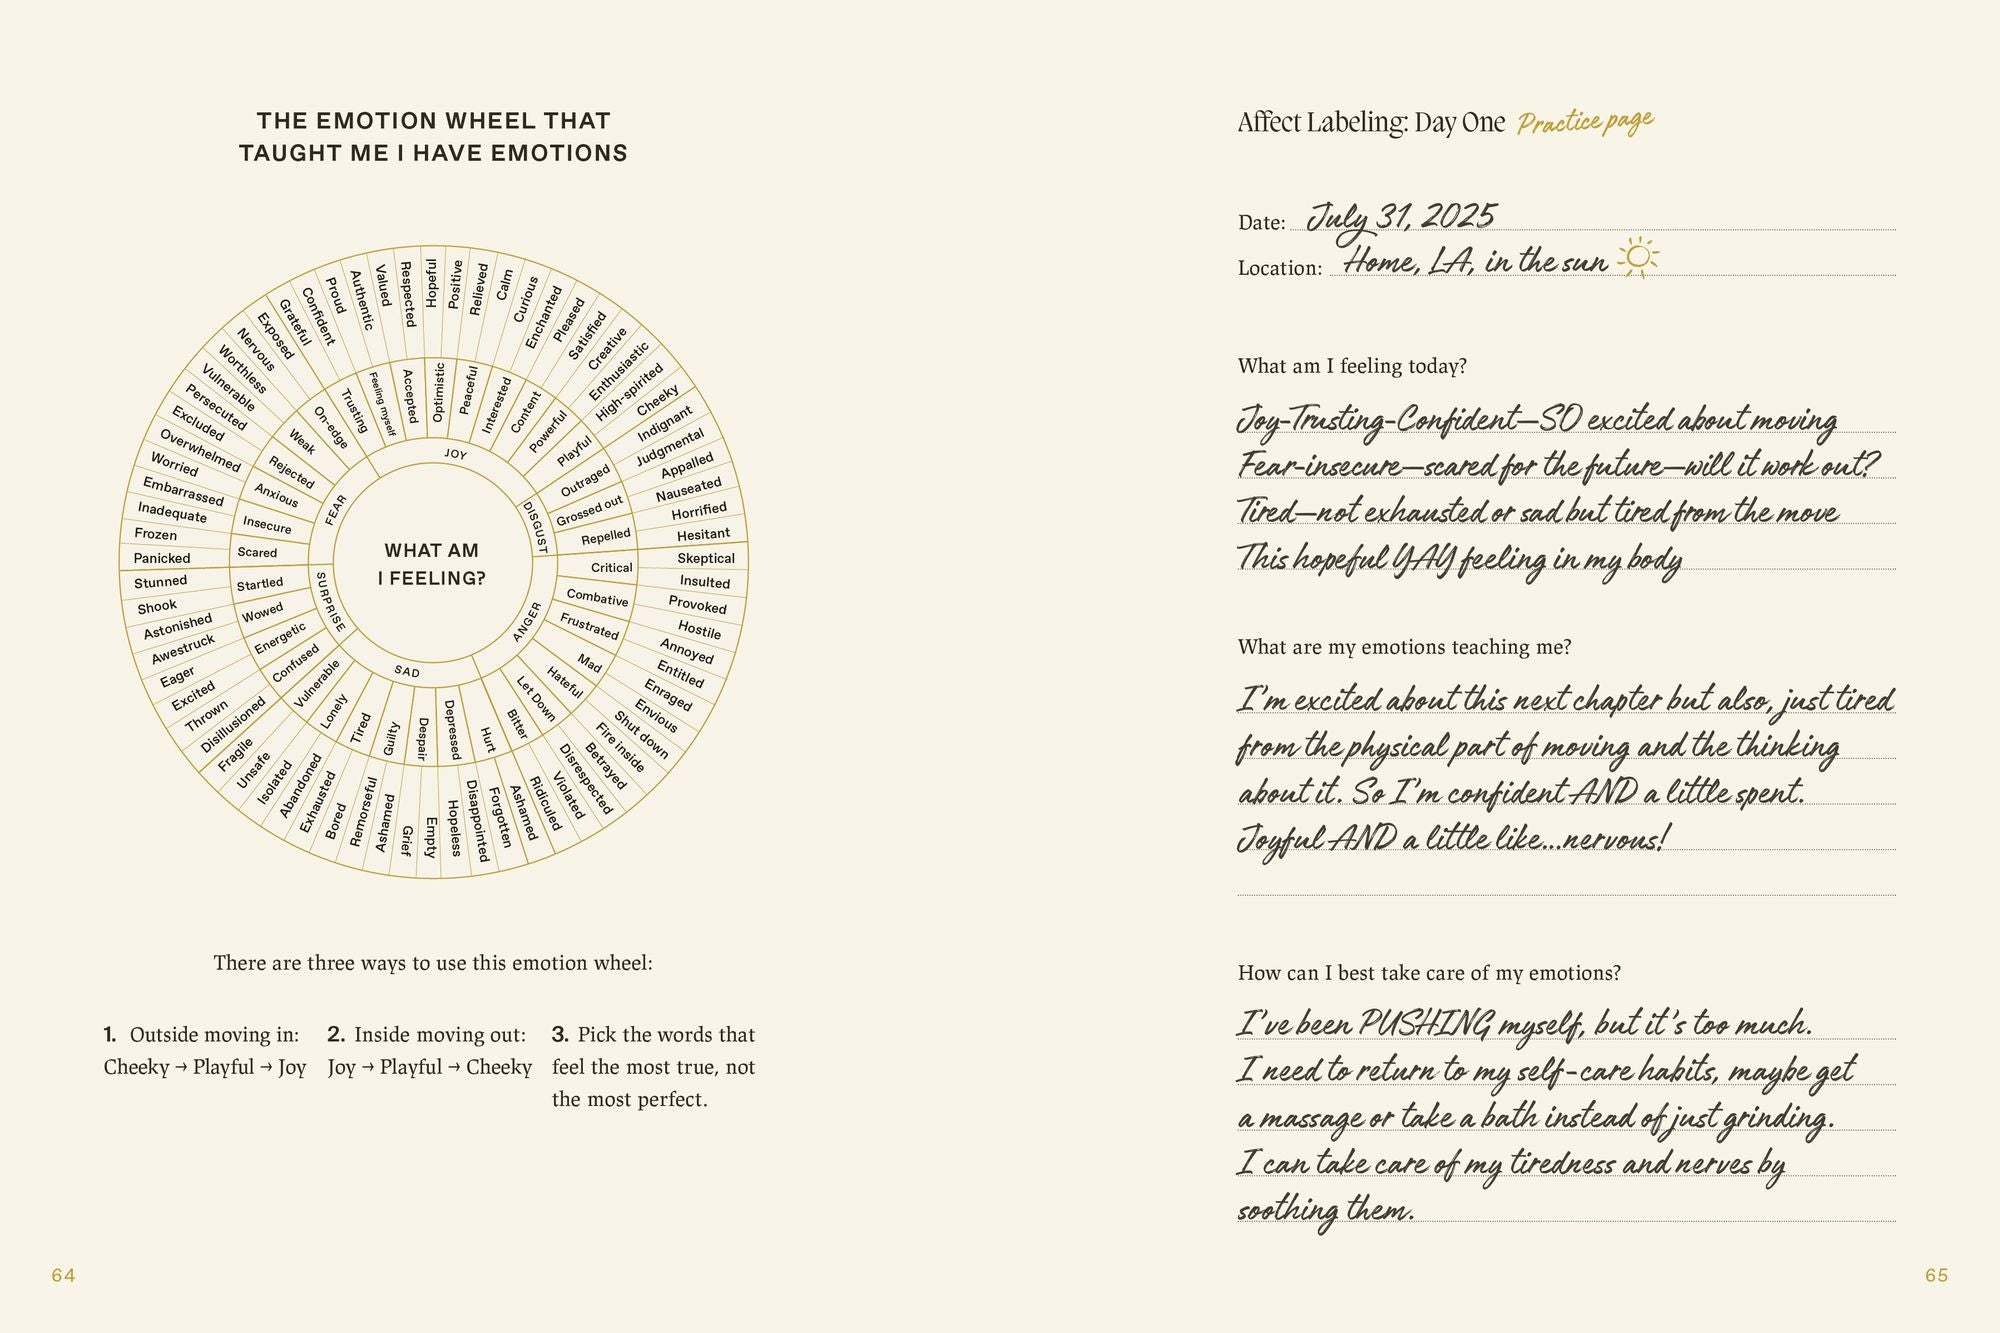 THE EMOTION WHEEL THAT
TAUGHT ME I HAVE EMOTIONS
WHAT AM
I FEELING?
JOY
DISGUST
ANGER
SAD
SURPRISE
FEAR
Trusting
Feeling myself
Accepted
Optimistic
Peaceful
Interested
Content
Powerful
Playful
Outraged
Grossed out
Repelled
Critical
Combative
Frustrated
Mad
Hateful
Let Down
Bitter
Hurt
Depressed
Despair
Guilty
Tired
Lonely
Vulnerable
Confused
Energetic
Wowed
Startled
Scared
Insecure
Anxious
Rejected
Weak
On-edge
Grateful
Confident
Proud
Authentic
Valued
Respected
Hopeful
Positive
Relieved
Calm
Curious
Enchanted
Pleased
Satisfied
Creative
Enthusiastic
High-spirited
Cheeky
Indignant
Judgmental
Appalled
Nauseated
Horrified
Hesitant
Skeptical
Insulted
Provoked
Hostile
Annoyed
Entitled
Enraged
Envious
Shut down
Fire Inside
Betrayed
Disrespected
Violated
Ridiculed
Ashamed
Forgotten
Disappointed
Hopeless
Empty
Grief
Ashamed
Remorseful
Bored
Exhausted
Abandoned
Isolated
Unsafe
Fragile
Disillusioned
Thrown
Excited
Eager
Awestruck
Astonished
Shook
Stunned
Panicked
Frozen
Inadequate
Embarrassed
Worried
Overwhelmed
Excluded
Persecuted
Vulnerable
Worthless
Nervous
Exposed
There are three ways to use this emotion wheel:
1. Outside moving in:
Cheeky → Playful → Joy
2. Inside moving out:
Joy → Playful → Cheeky
3. Pick the words that
feel the most true, not
the most perfect.
64
Affect Labeling: Day One Practice page
Date: July 31, 2025
Location: Home, LA, in the sun
What am I feeling today?
Joy-Trusting-Confident—SO excited about moving
Fear-insecure—scared for the future—will it work out?
Tired—not exhausted or sad but tired from the move
This hopeful YAY feeling in my body
What are my emotions teaching me?
I'm excited about this next chapter but also, just tired
from the physical part of moving and the thinking
about it. So I'm confident AND a little spent.
Joyful AND a little like...nervous!
How can I best take care of my emotions?
I've been PUSHING myself, but it's too much.
I need to return to my self-care habits, maybe get
a massage or take a bath instead of just grinding.
I can take care of my tiredness and nerves by
soothing them.
65